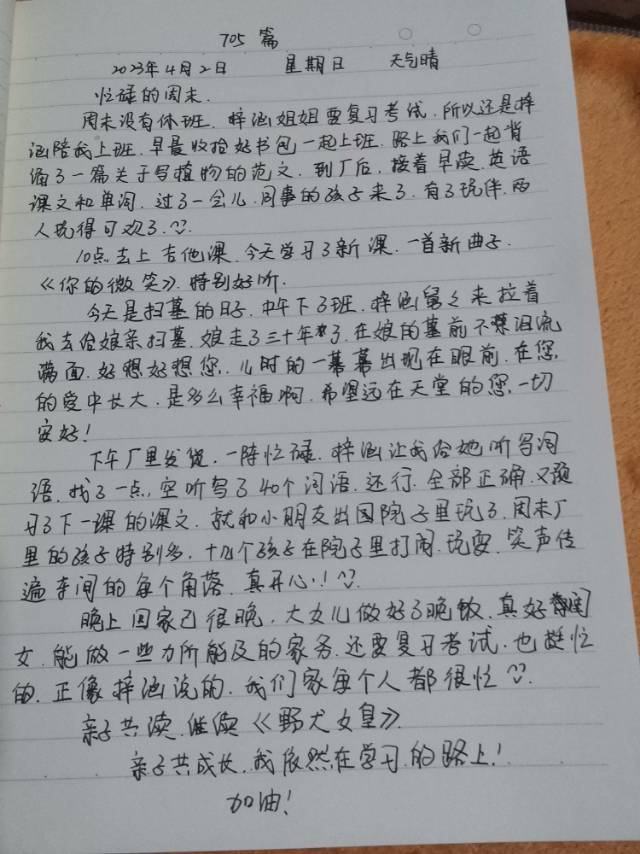 705篇
2023年4月2日 星期日 天气晴
忙碌的周末.
周末没有休班.梓涵姐姐要复习考试.所以还是梓
涵陪我上班.早晨收拾好书包一起上班.路上我们一起背
诵了一篇关于写植物的范文.到厂后,接着早读.英语
课文和单词.过了一会儿.同事的孩子来了.有了玩伴.两
人玩得可欢了.
10点去上吉他课.今天学习了新课.一首新曲子.
《你的微笑》.特别好听.
今天是扫墓的日子.中午下了班.梓涵舅舅来拉着
我去给娘亲扫墓.娘走了三十年了.在娘的墓前不禁泪流
满面.好想好想您.儿时的一幕幕出现在眼前.在您.
的爱中长大.是多么幸福啊.希望远在天堂的您.一切
安好!
下午厂里发货.一阵忙碌.梓涵让我给她听写词
语.找了一点.空听写了40个词语.还行.全部正确.又预
习了下一课的课文.就和小朋友出回院子里玩了.周末厂
里的孩子特别多.十几个孩子在院子里打闹.玩耍.笑声传
遍车间的每个角落.真开心!
晚上回家已很晚.大女儿做好了晚饭.真好
女.能做一些力所能及的家务.还要复习考试.也挺忙
的.正像梓涵说的.我们家每个人都很忙.
亲子共读.继续《野犬女皇》.
亲子共成长.我依然在学习的路上!
加油!